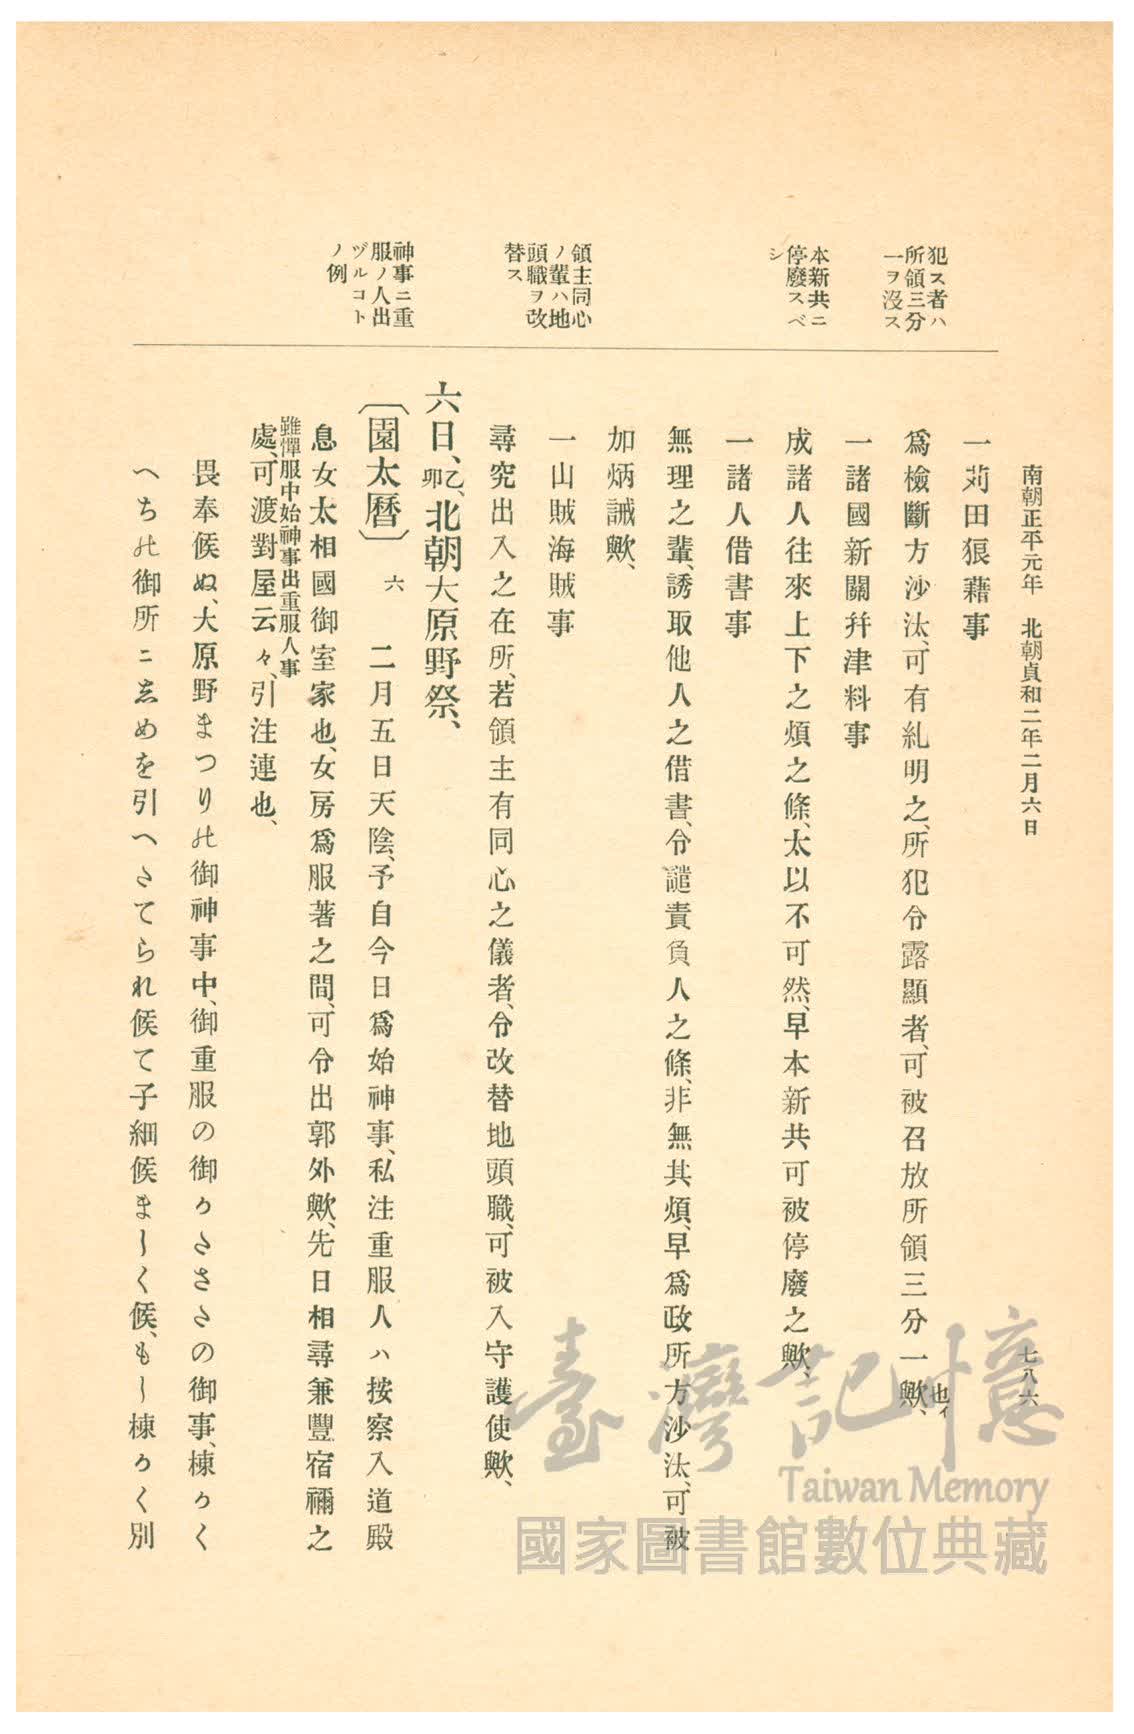 南朝正平元年　北朝貞和二年二月六日
七八六
犯ス者ハ
所領三分
一ヲ沒ス
本新共ニ
停廢スベ
シ
領主同心
ノ輩ハ地
頭職ヲ改
替ス
神事ニ重
服ノ人出
ヅルコト
ノ例
一苅田狼藉事
爲檢斷方沙汰、可有糺明之、所犯令露顯者、可被召放所領三分一歟、
也イ
一諸國新關幷津料事
成諸人往來上下之煩之條、太以不可然、早本新共可被停廢之歟、
一諸人借書事
無理之輩、誘取他人之借書、令譴責負人之條、非無其煩、早爲政所方沙汰、可被
加炳誡歟、
一山賊海賊事
尋究出入之在所、若領主有同心之儀者、令改替地頭職、可被入守護使歟、
六日、乙卯、北朝大原野祭、
〔園太曆〕　六　二月五日天陰、予自今日爲始神事、私注重服人ハ按察入道殿
息女太相國御室家也、女房爲服著之間、可令出郭外歟、先日相尋兼豐宿禰之
雖憚服中始神事出重服人事
處、可渡對屋云々、引注連也、
畏奉候ぬ、大原野まつりの御神事中、御重服の御かたさたの御事、棟かく
へちの御所ニしめを引へたてられ候て子細候ましく候、もし棟かく別
臺灣記憶
Taiwan Memory
國家圖書館數位典藏